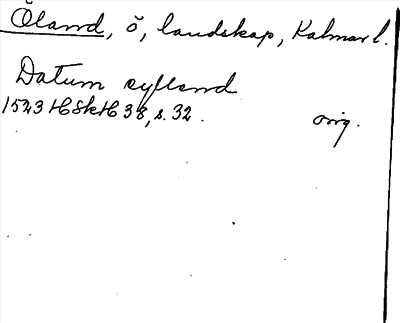 Öland, ö, landskap, Kalmar l.
Datum øylland
1523 HSkH 38, s. 32. orig.